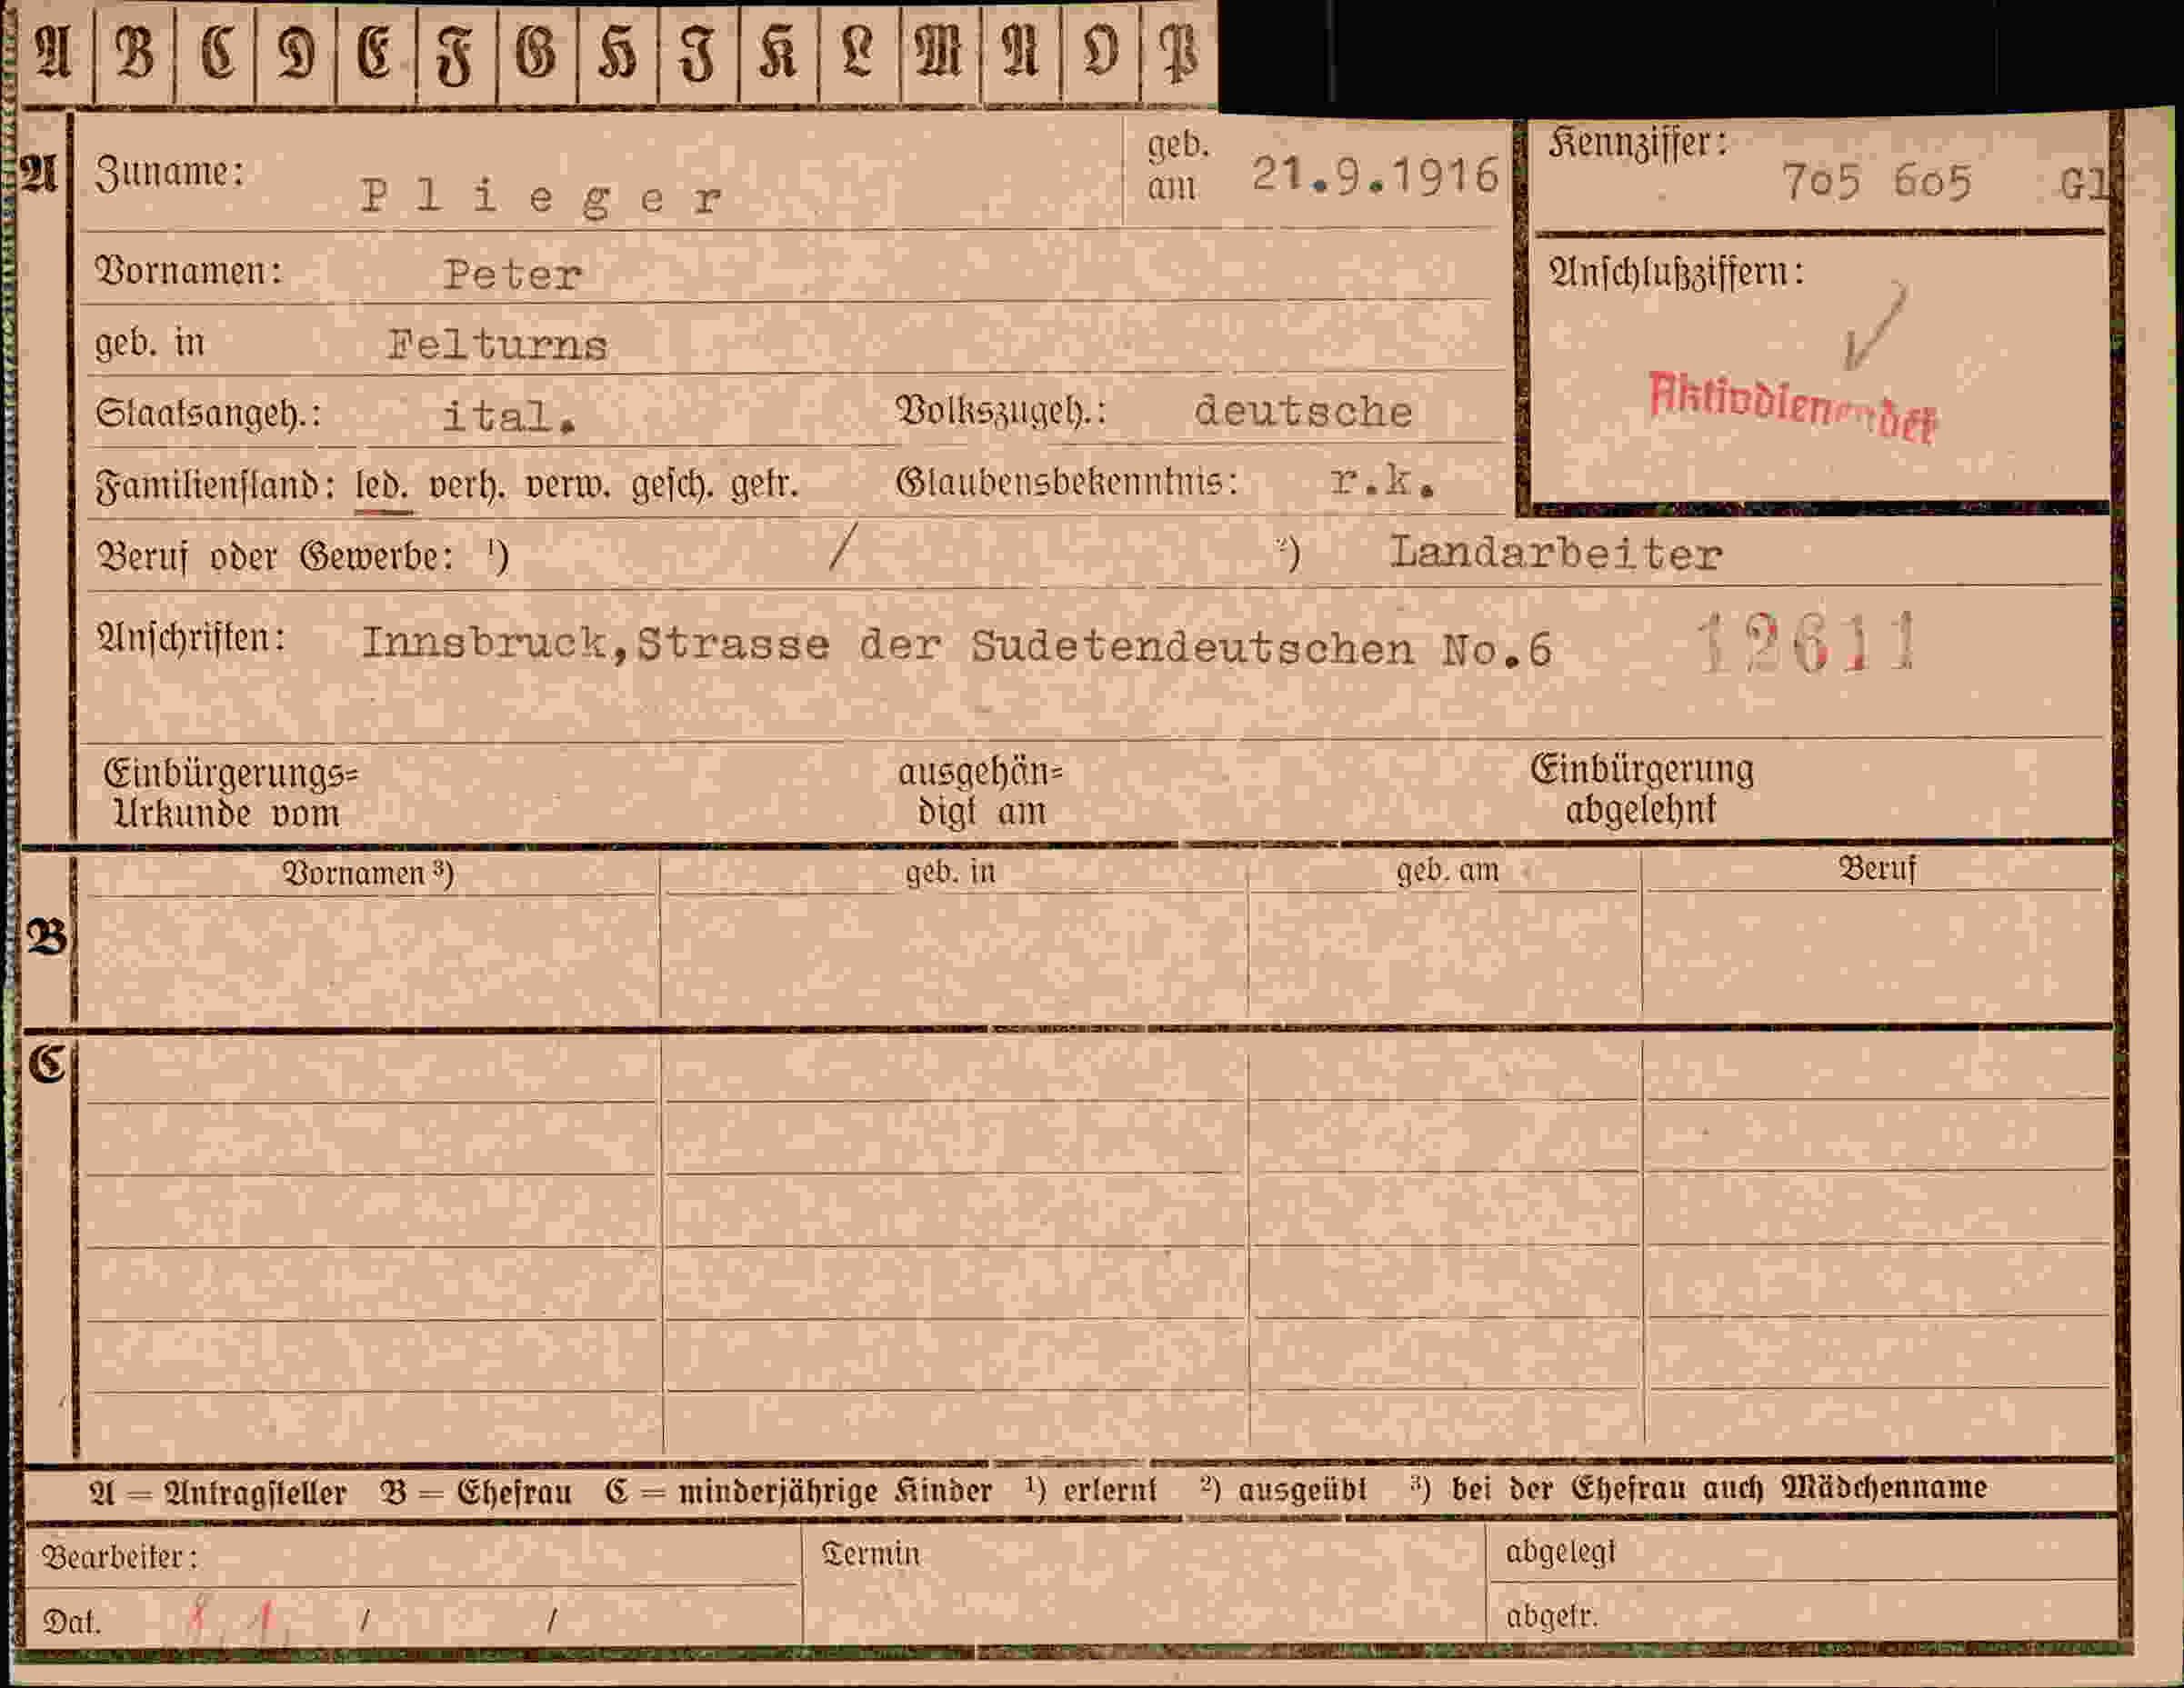 A B C D E F G H I K L M N O P
A Zuname: Plieger geb. am 21.9.1916 Kennziffer: 705 605 Gl
Vornamen: Peter Anschlußziffern:
geb. in Felturns
Aktivdienender
Staatsangeh.: ital. Volkszugeh.: deutsche
Familienstand: led. verh. verw. gesch. getr. Glaubensbekenntnis: r.k.
Beruf oder Gewerbe: ¹) / ²) Landarbeiter
Anschriften: Innsbruck,Strasse der Sudetendeutschen No.6 12611
Einbürgerungs= ausgehän= Einbürgerung
Urkunde vom digt am abgelehnt
Vornamen ³) geb. in geb. am Beruf
B
C
A = Antragsteller B = Ehefrau C = minderjährige Kinder ¹) erlernt ²) ausgeübt ³) bei der Ehefrau auch Mädchenname
Bearbeiter: Termin abgelegt
Dat. / / abgetr.